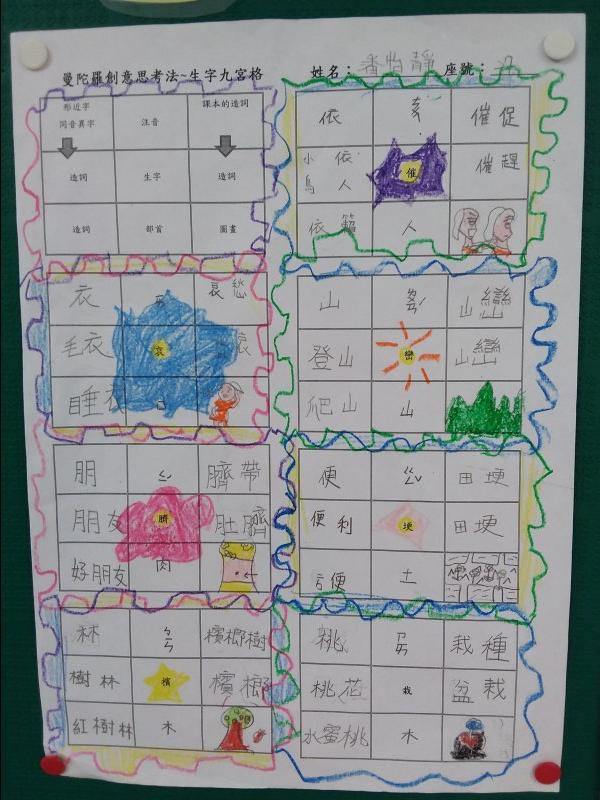 曼陀羅創意思考法~生字九宮格 姓名： 座號：
形近字
同音異字
注音
課本的造詞
造詞 生字 造詞
造詞 部首 圖畫
依 催促
小鳥依人 催 催趕
依 人
衣 哀愁
毛衣 哀
睡衣 口
山 山巒
登山 巒 山巒
爬山 山
朋 ㄑㄧˊ 臍帶
朋友 臍 肚臍
好朋友 肉
便 ㄍㄥˇ 田埂
便利 埂 田埂
方便 土
林 ㄅㄢ 檳榔樹
樹林 檳 檳榔
紅樹林 木
桃 ㄗㄞ 栽種
桃花 栽 盆栽
水蜜桃 木